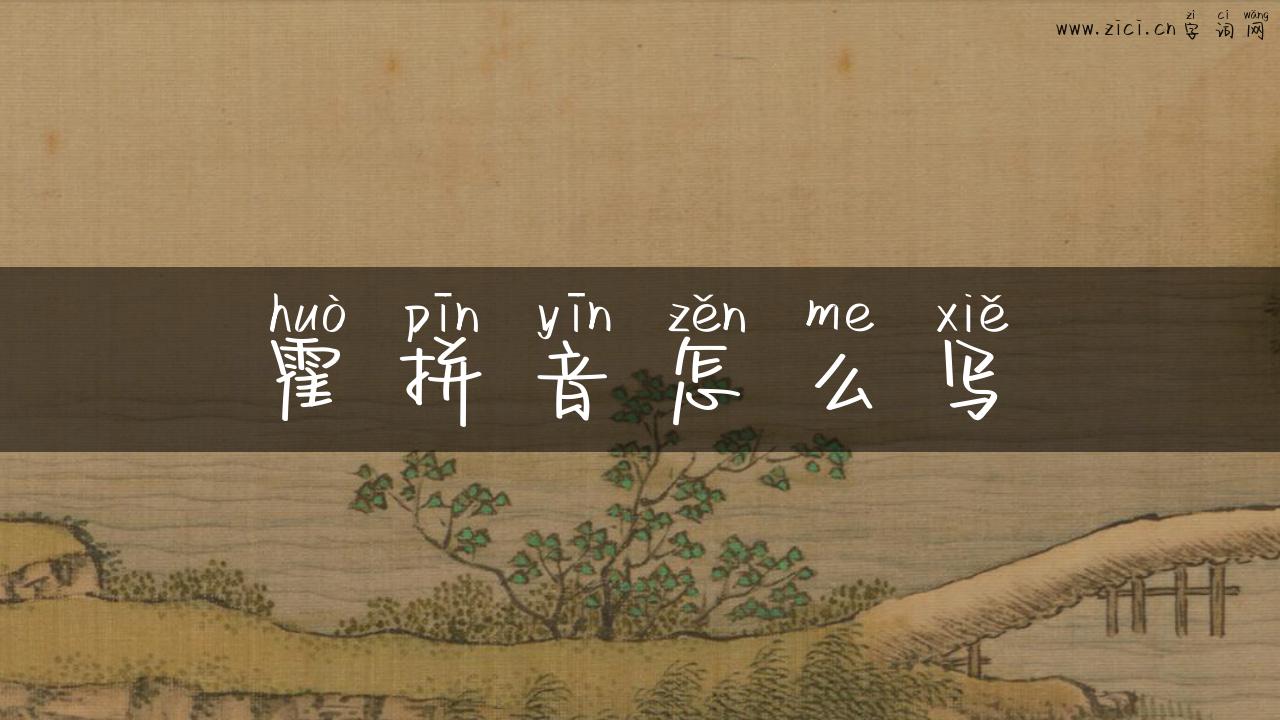 zì cí wǎng
www.zici.cn 字词网
huò pīn yīn zěn me xiě
霍拼音怎么写